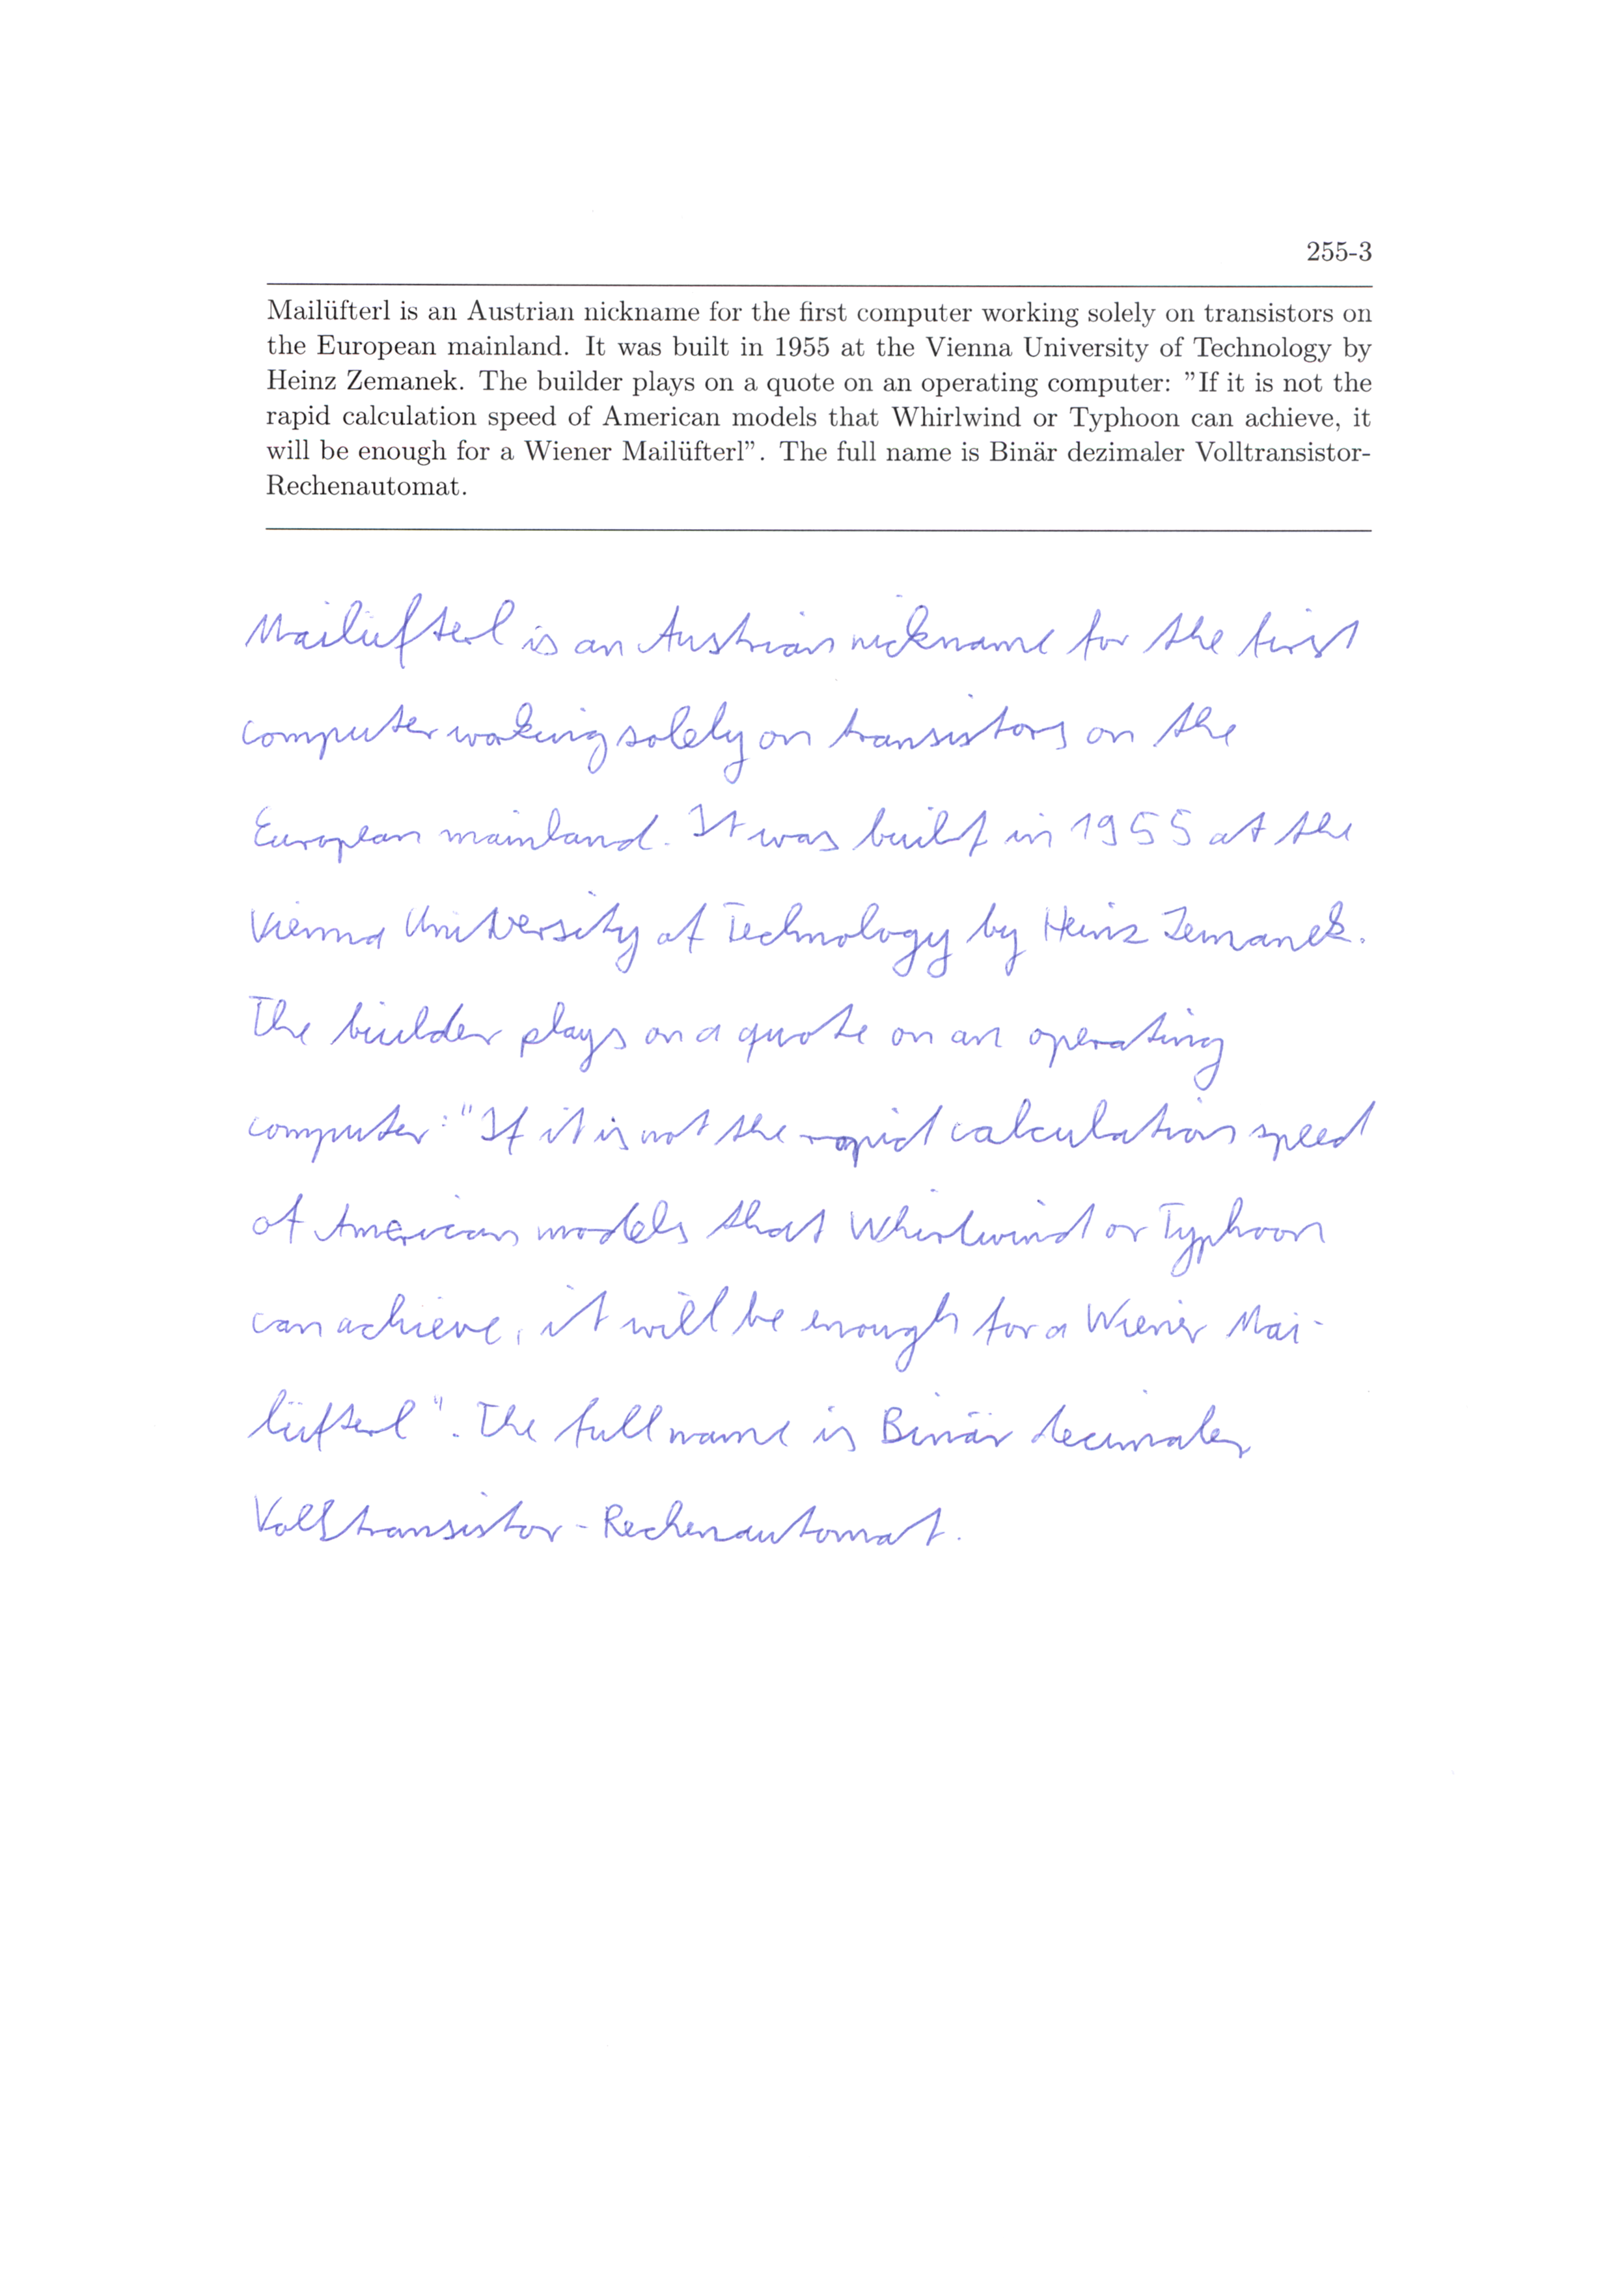 255-3
Mailüfterl is an Austrian nickname for the first computer working solely on transistors on
the European mainland. It was built in 1955 at the Vienna University of Technology by
Heinz Zemanek. The builder plays on a quote on an operating computer: ”If it is not the
rapid calculation speed of American models that Whirlwind or Typhoon can achieve, it
will be enough for a Wiener Mailüfterl”. The full name is Binär dezimaler Volltransistor-
Rechenautomat.
Mailüfterl is an Austrian nickname for the first
computer working solely on transistors on the
European mainland. It was built in 1955 at the
Vienna University of Technology by Heinz Zemanek.
The builder plays on a quote on an operating
computer: "If it is not the rapid calculation speed
of American models that Whirlwind or Typhoon
can achieve, it will be enough for a Wiener Mai-
lüfterl". The full name is Binär decimaler
Volltransistor - Rechenautomat.